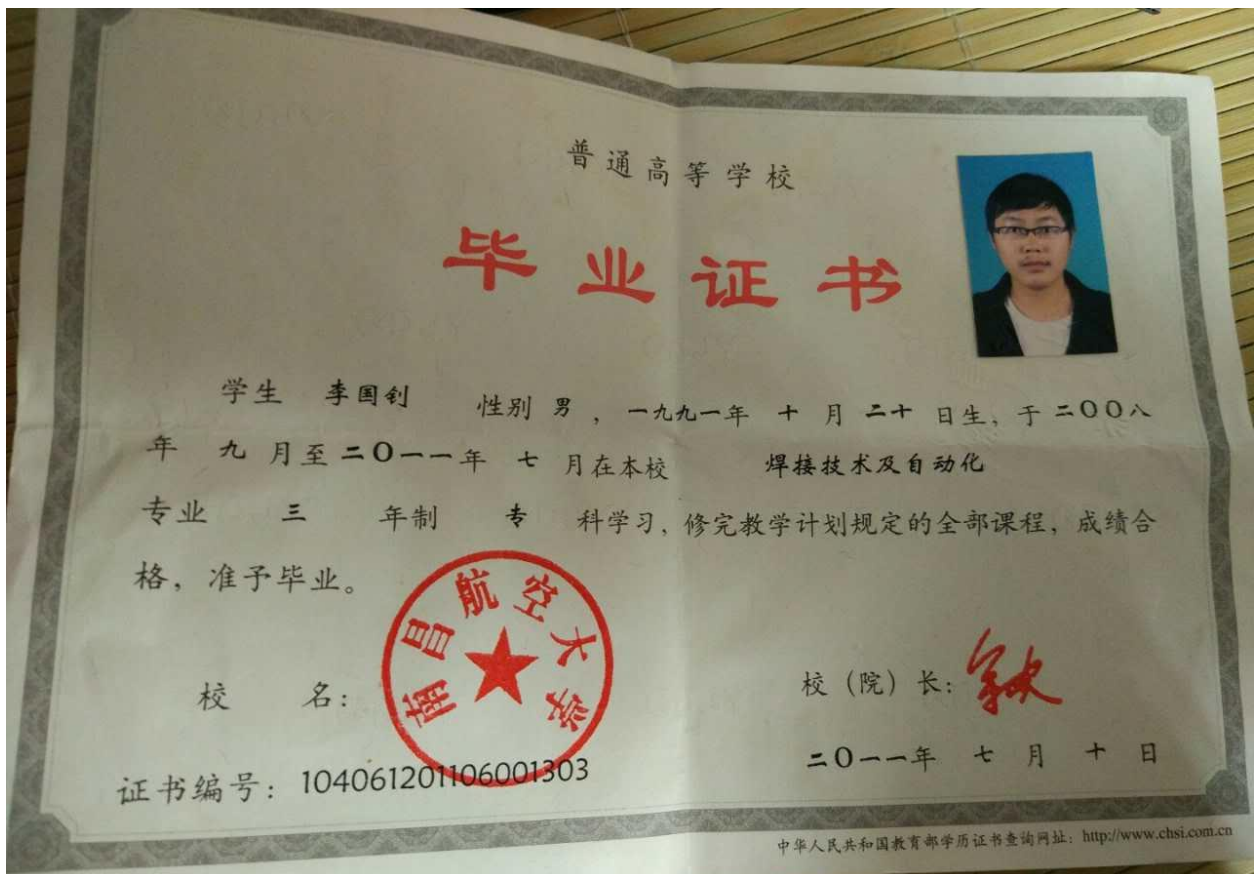 普通高等学校
毕业证书
学生 李国钊 性别 男 ，一九九一年 十 月 二十 日生，于 二OO八
年 九 月至 二O一一年 七 月在本校 焊接技术及自动化
专业 三 年制 专 科学习，修完教学计划规定的全部课程，成绩合
格，准予毕业。
南昌航空大学
校 名：
校（院）长：
二O一一年 七 月 十 日
证书编号：104061201106001303
中华人民共和国教育部学历证书查询网址：http://www.chsi.com.cn